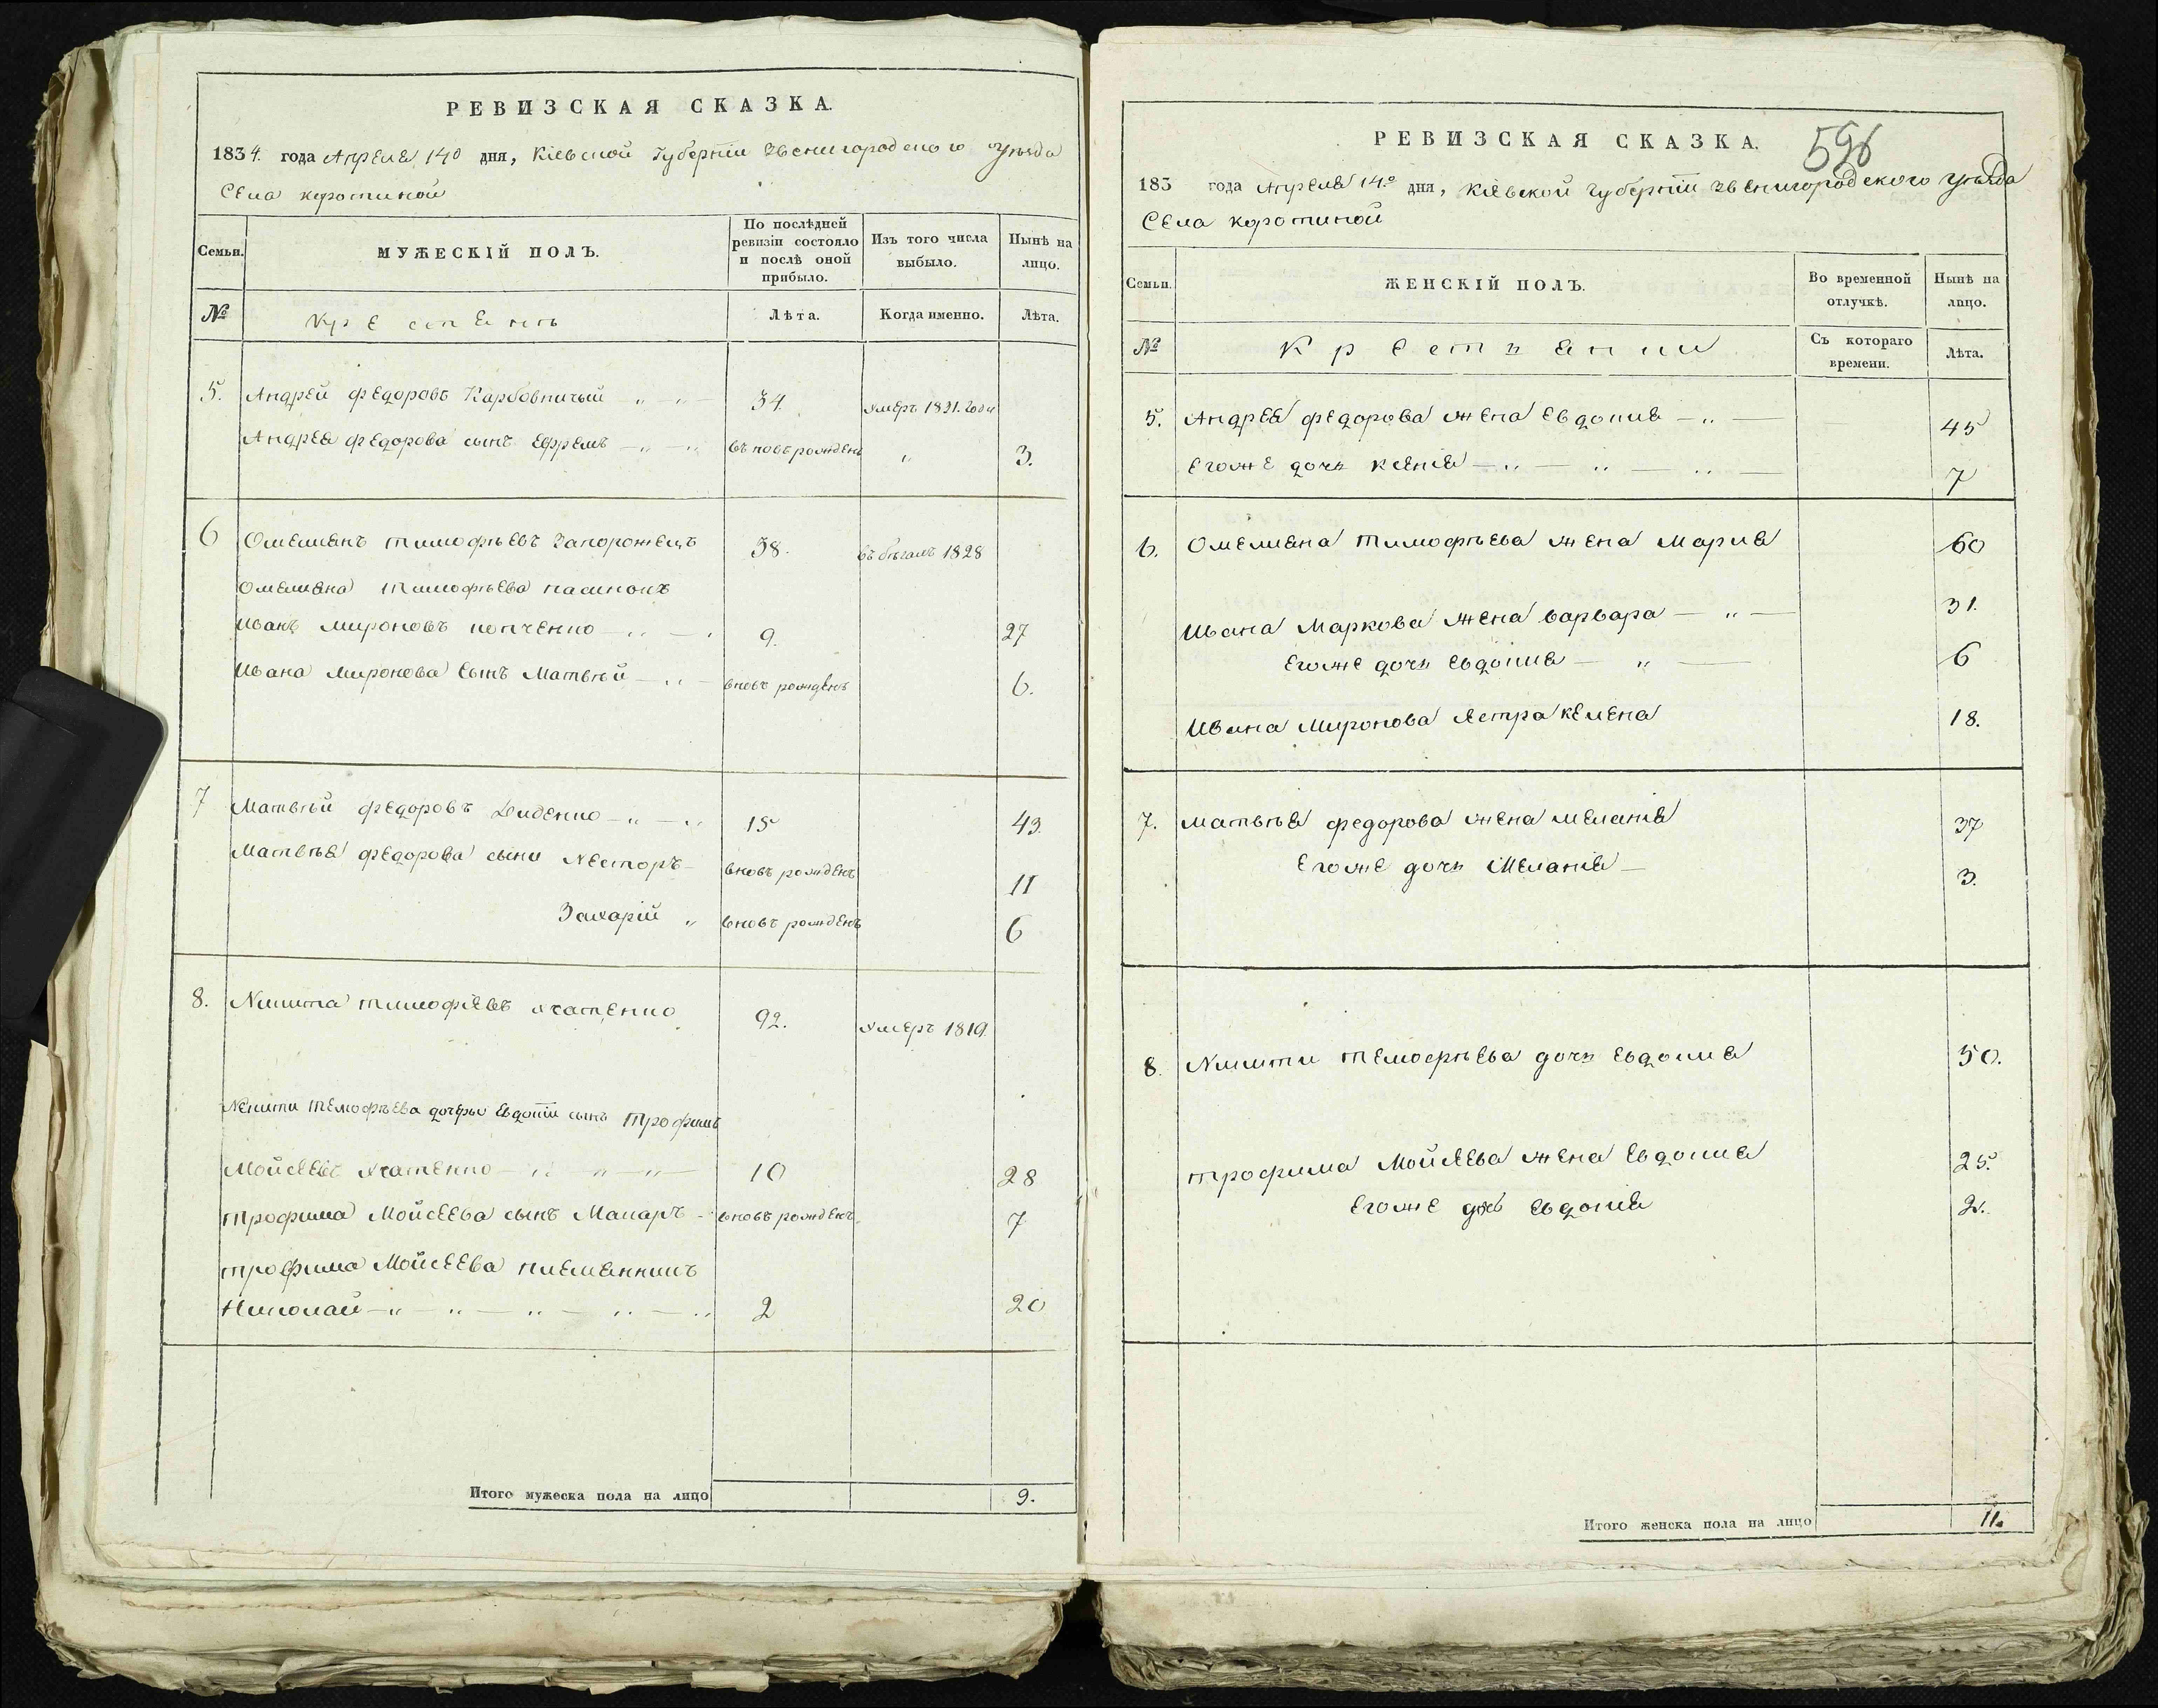 РЕВИЗСКАЯ СКАЗКА.
1834. года Апреля 14º дня, Кіевской Губерніи Звенигородского Уѣзда
Села Коротиной
Семьи. МУЖЕСКІЙ ПОЛЪ. По послѣдней ревизіи состояло и послѣ оной прибыло. Изъ того числа выбыло. Нынѣ на лицо.
№ Лѣта. Когда именно. Лѣта.
5. Андрей федоровъ 34. умеръ 1821. года
Андрея федорова сынъ Ефремъ — " — " въновъ рожденъ " 3.
6 Омелиянъ тимофѣевъ Запорожецъ 38. въ бѣгахъ 1828
Омелияна тимофѣева пасинокъ
Иванъ Мироновъ — " — " 9. 27
Ивана Миронова сынъ Матвѣй — " — вновъ рожденъ 6.
7 Матвѣй федоровъ Диденко — " — " 15 43.
Матвѣя федорова сыни Несторъ — вновъ рожденъ 11
Захарій " вновъ рожденъ 6
8. Никита тимофіевъ 92. умеръ 1819.
Никити темофѣева дочеры Евдокіи сынъ Трофимъ
Мойсеевъ — " — " — " — 10 28
трофима Мойсеева сынъ Макаръ — вновъ рожденъ 7
трофима Мойсеева племянникъ
Николай — " — " — " — " — " 2 20
Итого мужеска пола на лицо 9.
596
РЕВИЗСКАЯ СКАЗКА.
183 года Апреля 14.º дня, Кіевской губерніи звенигородского уѣзда
Села Коротиной
Семьи. ЖЕНСКІЙ ПОЛЪ. Во временной отлучкѣ. Нынѣ на лицо.
№ Крестьянки Съ котораго времени. Лѣта.
5. Андрея федорова жена Евдокия — " — 45
Егоже дочь Ксенія — " — " — " — 7
6. Омелияна тимофѣева жена Мария 60
Ивана Маркова жена варвара — " — 31.
Егоже дочь Евдокия — " — 6
Ивана Миронова сестра 18.
7. Матвѣя федорова жена меланія 37
Егоже дочь Меланія — 3.
8. Никити темофѣева дочь Евдокия 50.
трофима Мойсеева жена Евдокия 25.
Егоже дочь Евдокія 2.
Итого женска пола на лицо 11.